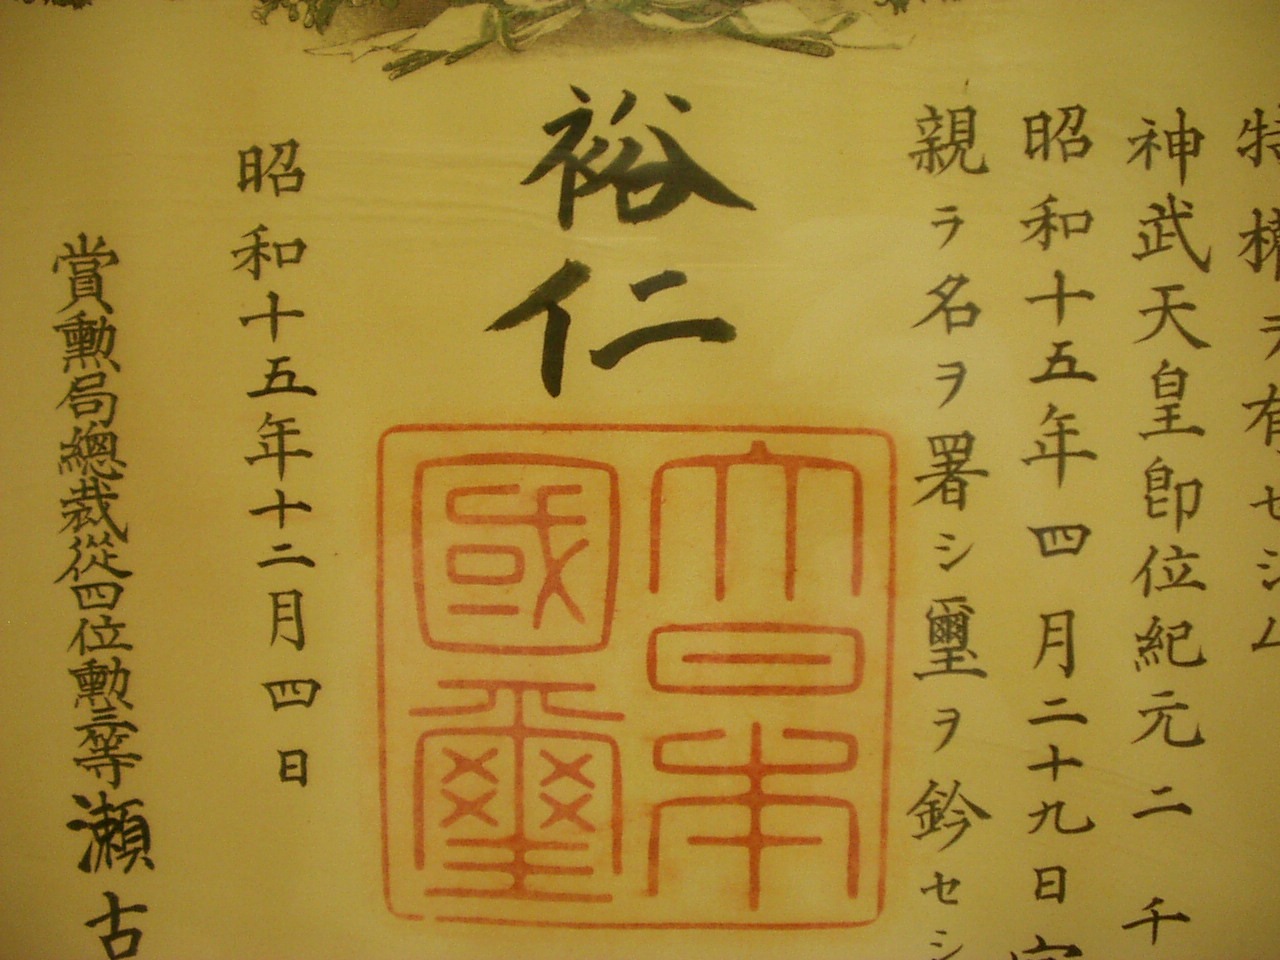 特權ヲ有セシム
神武天皇卽位紀元二千
昭和十五年四月二十九日
親ラ名ヲ署シ璽ヲ鈐セシ
裕仁
大日本
國璽
昭和十五年十二月四日
賞勳局總裁從四位勳三等瀬古